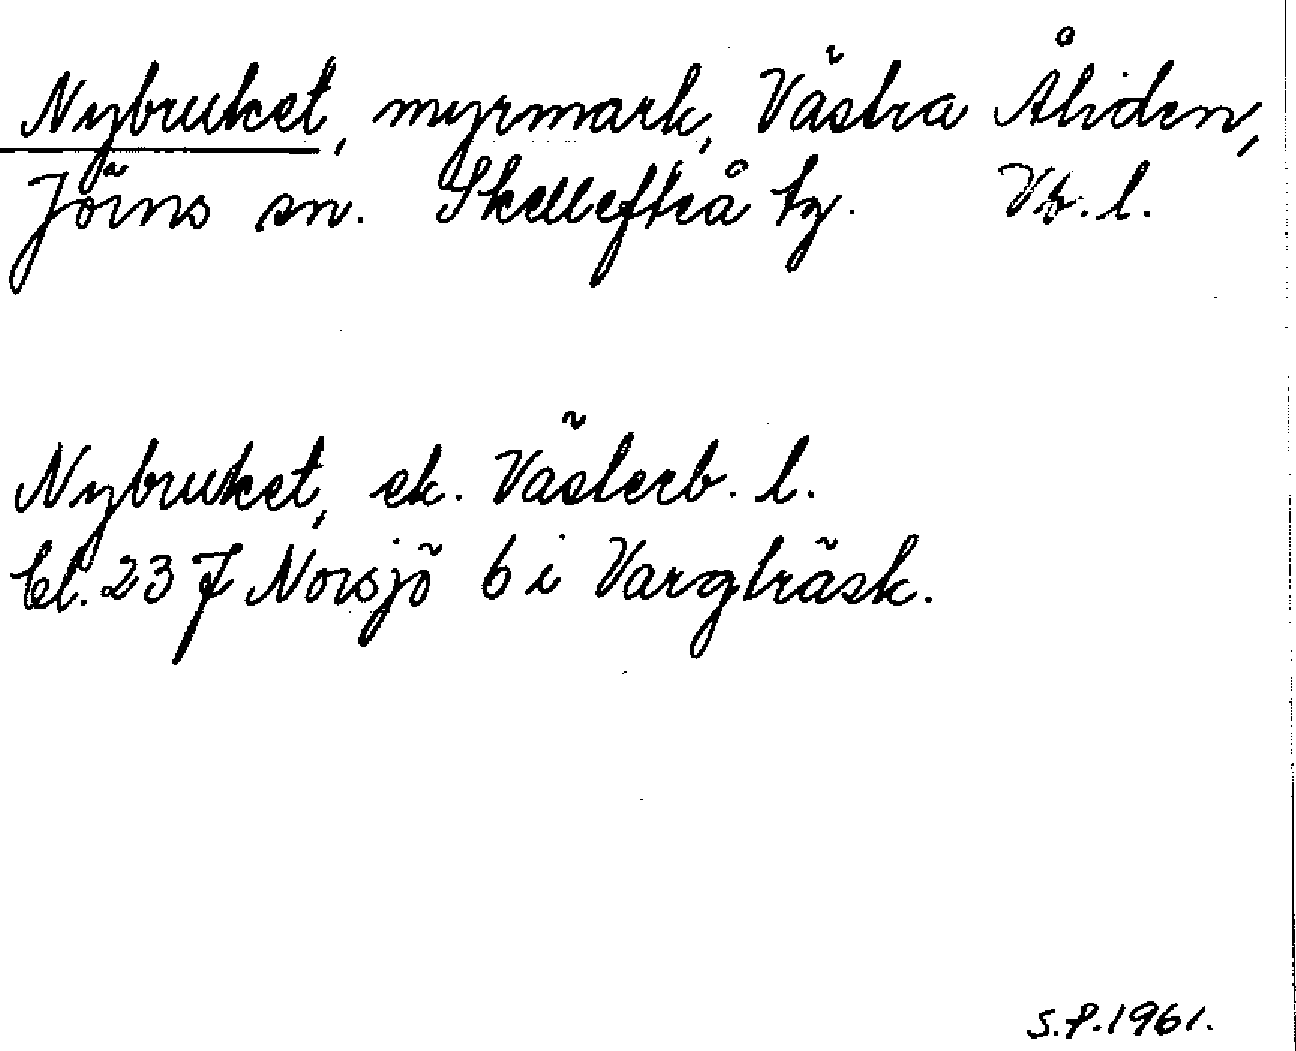 Nybruket, myrmark, Västra Åliden,
Jörns sn. Skellefteå tg. Vb. l.
Nybruket, ek. Västerb. l.
bl. 23 J Norsjö 6 i Vargträsk.
S.P. 1961.